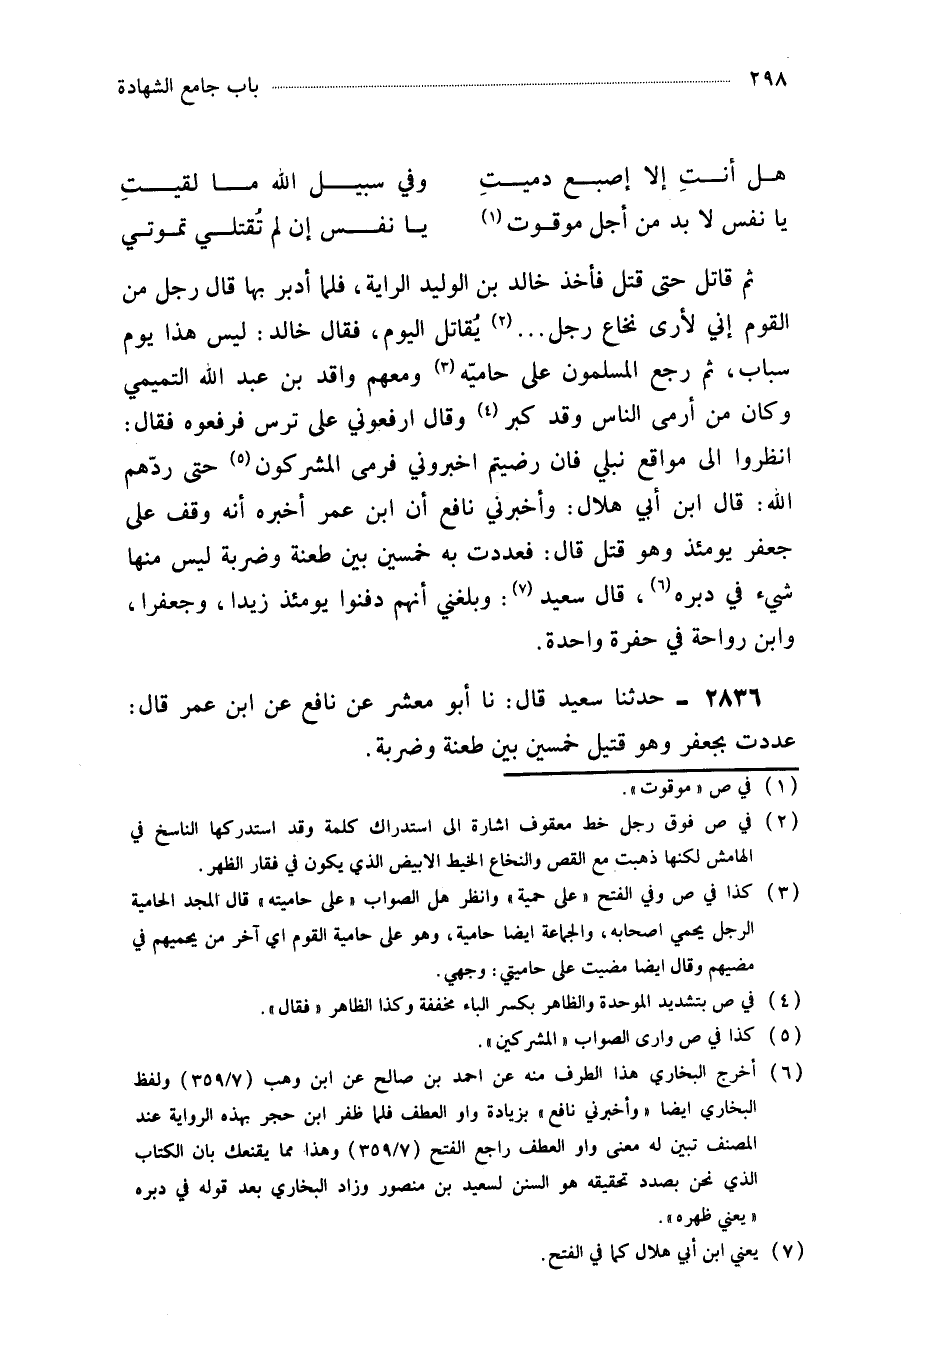 ٢٩٨ باب جامع الشهادة
هل أنتِ إلا إصبع دميتِ وفي سبيل الله ما لقيتِ
يا نفس لا بد من أجل موقوت (١) يا نفس إن لم تُقتلي تموتي
ثم قاتل حتى قتل فأخذ خالد بن الوليد الراية، فلما أدبر بها قال رجل من
القوم إني لأرى نخاع رجل... (٢) يُقاتل اليوم، فقال خالد: ليس هذا يوم
سباب، ثم رجع المسلمون على حاميّه (٣) ومعهم واقد بن عبد الله التميمي
وكان من أرمى الناس وقد كبر (٤) وقال ارفعوني على ترس فرفعوه فقال:
انظروا الى مواقع نبلي فان رضيتم اخبروني فرمى المشركون (٥) حتى ردّهم
الله: قال ابن أبي هلال: وأخبرني نافع أن ابن عمر أخبره أنه وقف على
جعفر يومئذ وهو قتل قال: فعددت به خمسين بين طعنة وضربة ليس منها
شيء في دبره (٦)، قال سعيد (٧): وبلغني أنهم دفنوا يومئذ زيدا، وجعفرا،
وابن رواحة في حفرة واحدة.
٢٨٣٦ - حدثنا سعيد قال: نا أبو معشر عن نافع عن ابن عمر قال:
عددت بجعفر وهو قتيل خمسين بين طعنة وضربة.
(١) في ص «موقوت».
(٢) في ص فوق رجل خط معقوف اشارة الى استدراك كلمة وقد استدركها الناسخ في
الهامش لكنها ذهبت مع القص والنخاع الخيط الابيض الذي يكون في فقار الظهر.
(٣) كذا في ص وفي الفتح «على حمية» وانظر هل الصواب «على حاميته» قال المجد الحامية
الرجل يحمي اصحابه، والجماعة ايضا حامية، وهو على حامية القوم اي آخر من يحميهم في
مضيهم وقال ايضا مضيت على حاميتي: وجهي.
(٤) في ص بتشديد الموحدة والظاهر بكسر الباء مخففة وكذا الظاهر «فقال».
(٥) كذا في ص وارى الصواب «المشركين».
(٦) أخرج البخاري هذا الطرف منه عن احمد بن صالح عن ابن وهب (٣٥٩/٧) ولفظ
البخاري ايضا «وأخبرني نافع» بزيادة واو العطف فلما ظفر ابن حجر بهذه الرواية عند
المصنف تبين له معنى واو العطف راجع الفتح (٣٥٩/٧) وهذا مما يقنعك بان الكتاب
الذي نحن بصدد تحقيقه هو السنن لسعيد بن منصور وزاد البخاري بعد قوله في دبره
«يعني ظهره».
(٧) يعني ابن أبي هلال كما في الفتح.